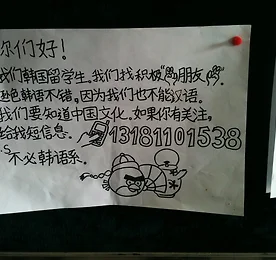 你们好!
我们韩国留学生。我们找积极“的朋友”
色韩语不错。因为我们也不能汉语。
我们要知道中国文化。如果你有关注。
给我短信息。13181101538
P.S 不必韩语系。